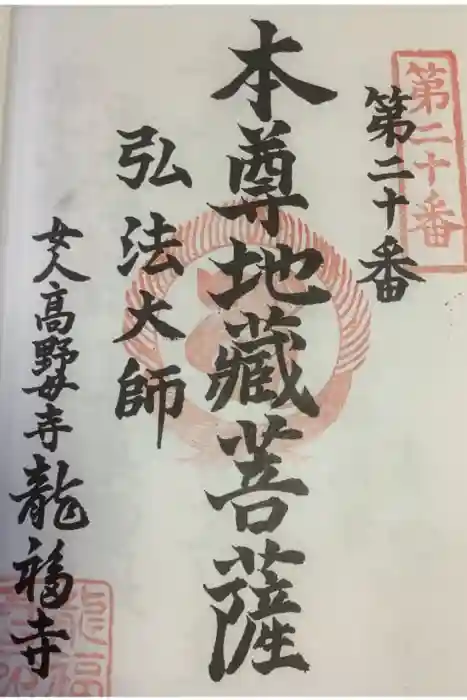 第二十番
第二十番
本尊地藏菩薩
弘法大師
女人高野女寺龍福寺
龍福